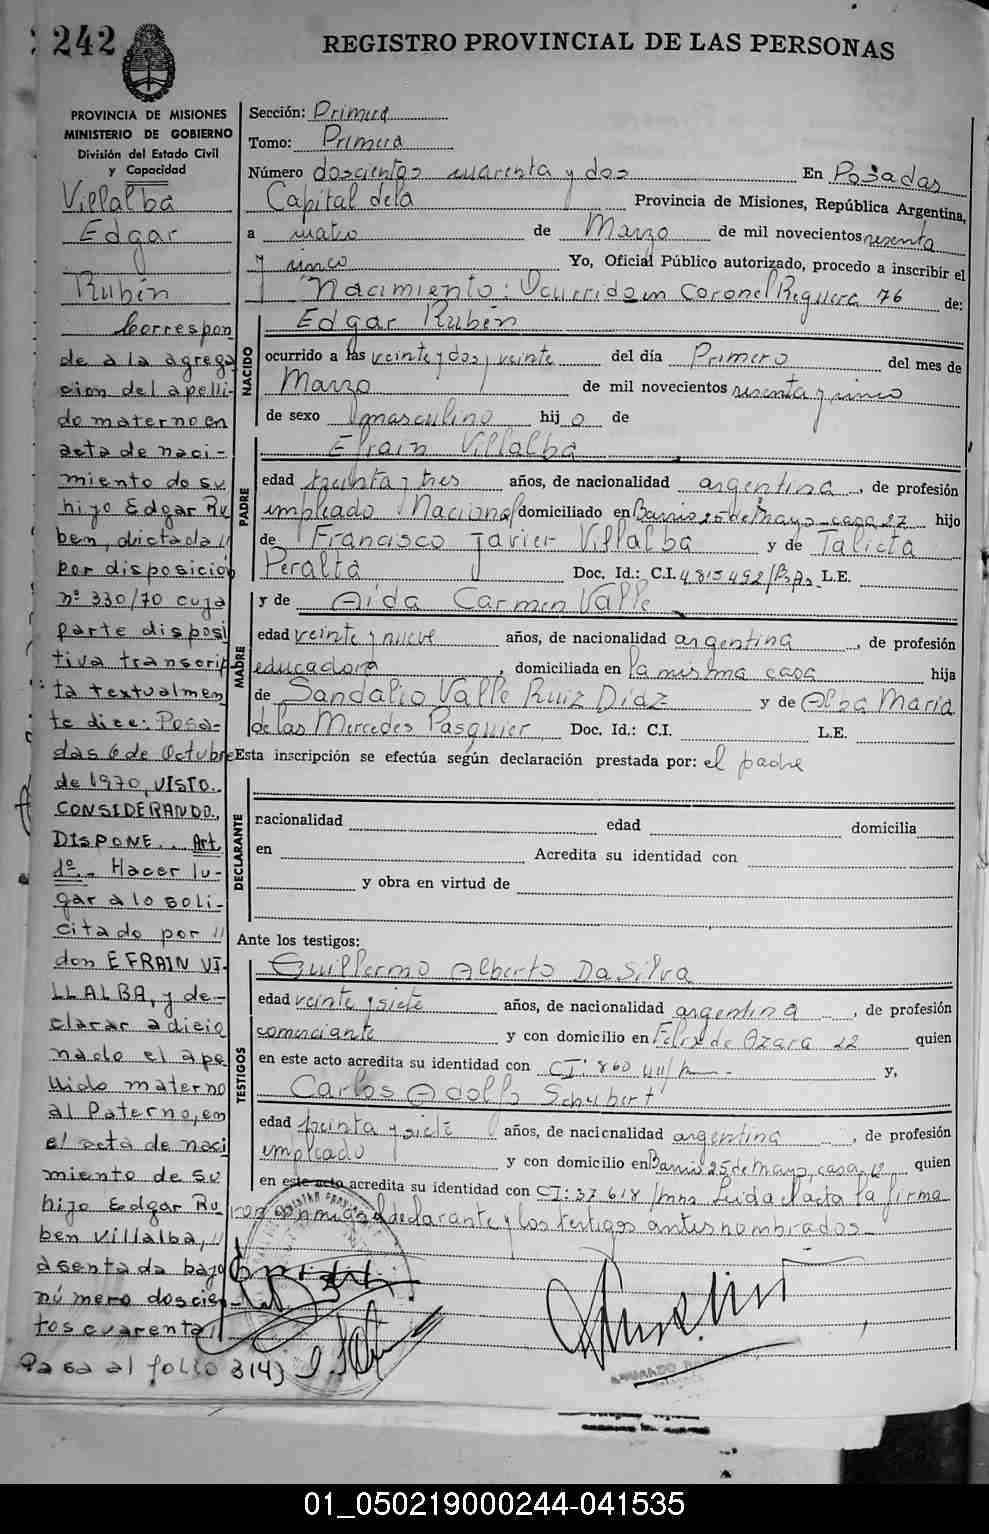 242
REGISTRO PROVINCIAL DE LAS PERSONAS
PROVINCIA DE MISIONES
MINISTERIO DE GOBIERNO
División del Estado Civil
y Capacidad
Villalba
Edgar
Rubén
Correspon
de a la agrega
cion del apelli-
do materno en
acta de naci-
miento de su
hijo Edgar Ru
ben, dictada //
por disposición
nº 330/70 cuya
parte disposi
tiva transcrip
ta textualmen
te dice: Posa-
das 6 de Octubre
de 1970, VISTO..
CONSIDERANDO.
DISPONE... Art.
1º.- Hacer lu-
gar a lo soli-
citado por //
don EFRAIN VI-
LLALBA, y de-
clarar adicio
nado el ape
llido materno
al Paterno, en
el acta de naci
miento de su
hijo Edgar Ru
ben Villalba, //
asentada bajo
número doscien
tos cuarenta //
Pasa al folio 314)
Sección: Primera
Tomo: Primera
Número doscientos cuarenta y dos En Posadas
Capital de la Provincia de Misiones, República Argentina,
a cuatro de Marzo de mil novecientos sesenta
y cinco Yo, Oficial Público autorizado, procedo a inscribir el
Nacimiento: Ocurrido en Coronel Reguera 76 de:
NACIDO
Edgar Rubén
ocurrido a las veinte y dos y veinte del día Primero del mes de
Marzo de mil novecientos sesenta y cinco
de sexo masculino hijo de
PADRE
Efrain Villalba
edad treinta y tres años, de nacionalidad argentina, de profesión
empleado Nacional domiciliado en Barrio 25 de Mayo - casa 27 hijo
de Francisco Javier Villalba y de Talicta
Peralta Doc. Id.: C.I. 4.815.492/ L.E.
MADRE
y de Aida Carmen Valle
edad veinte y nueve años, de nacionalidad argentina, de profesión
educadora, domiciliada en la misma casa hija
de Sandalio Valle Ruiz Diaz y de Alba María
de las Mercedes Pasquier Doc. Id.: C.I. L.E.
Esta inscripción se efectúa según declaración prestada por: el padre
DECLARANTE
nacionalidad edad domicilia
en Acredita su identidad con
y obra en virtud de
Ante los testigos:
TESTIGOS
Guillermo Alberto Da Silva
edad veinte y siete años, de nacionalidad argentina, de profesión
comerciante y con domicilio en Felix de Azara 22 quien
en este acto acredita su identidad con CI: 860 y,
Carlos Adolfo Schubert
edad treinta y siete años, de nacionalidad argentina, de profesión
empleado y con domicilio en Barrio 25 de Mayo, casa quien
en este acto acredita su identidad con CI: 37 618 /mns Leida el acta la firma
con conmigo el declarante y los testigos antes nombrados
01_050219000244-041535